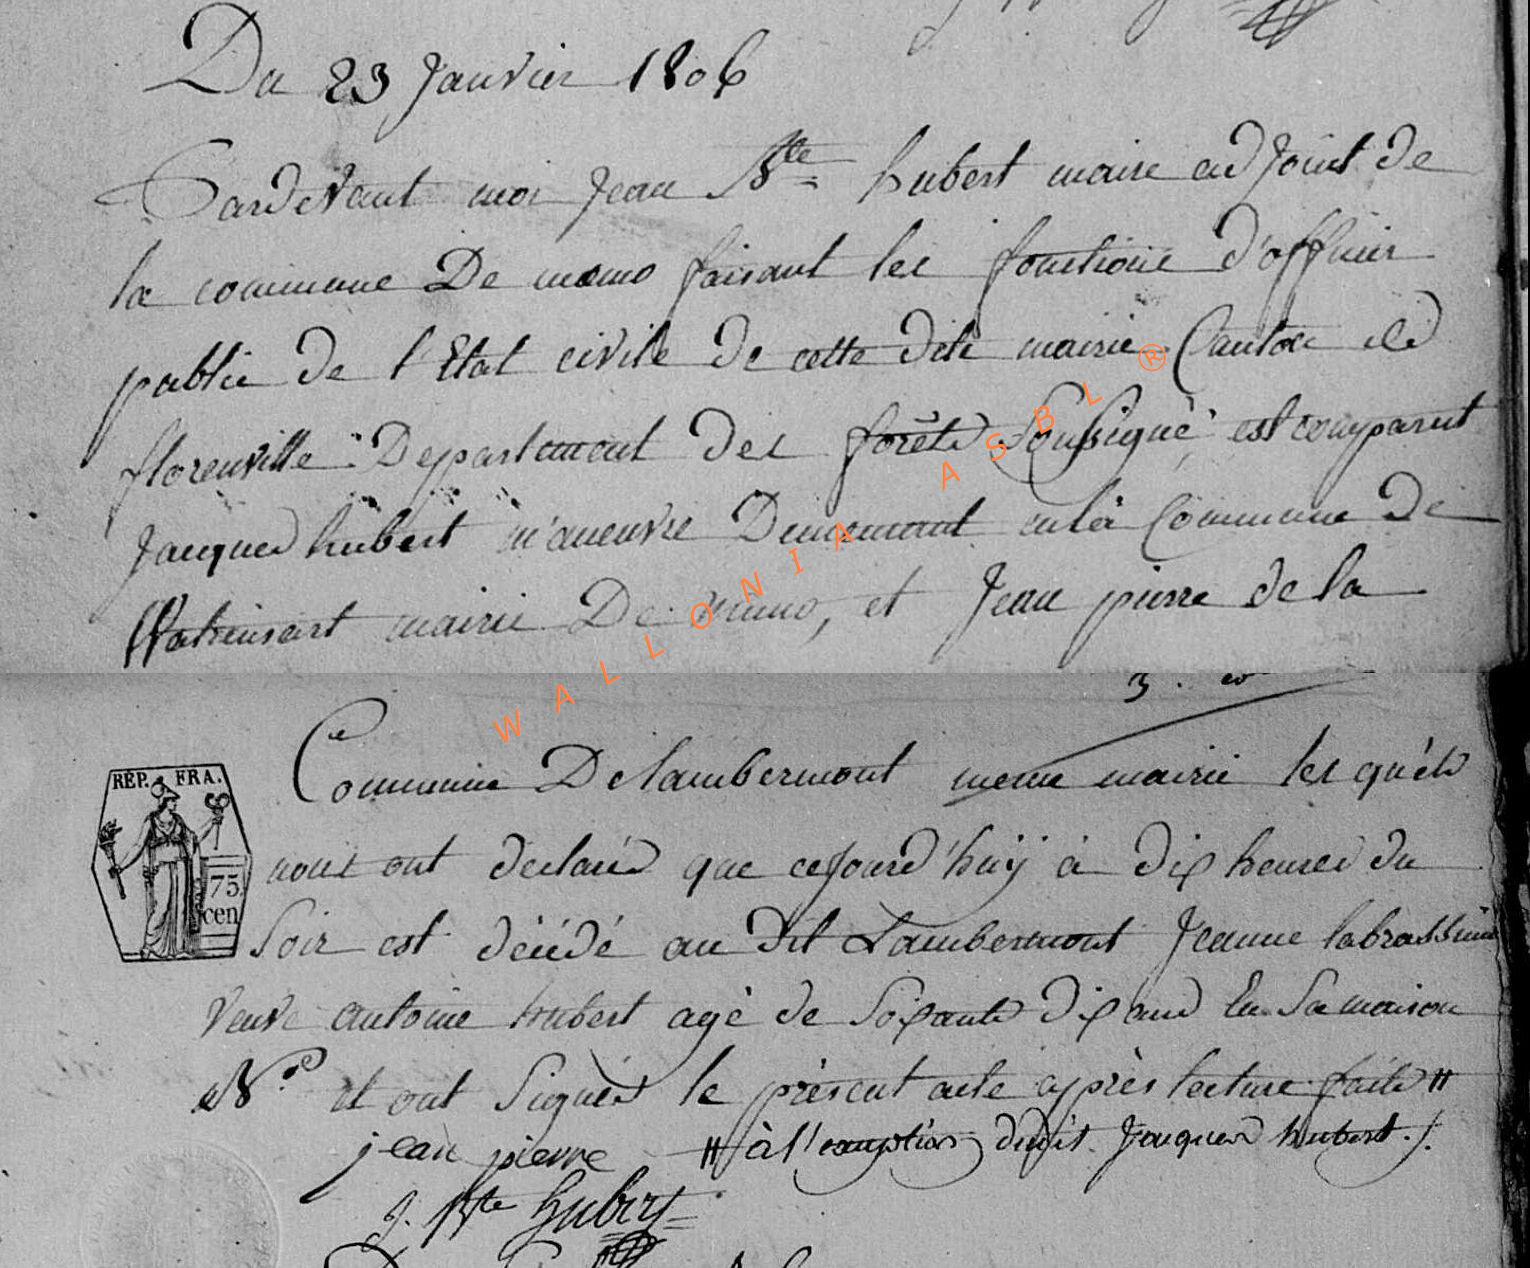 Du 23 Janvier 1806
Pardevant moi Jean Bte hubert maire adjoint de
la commune De muno faisant les fonctions d'officier
public de l'Etat civile de cette dite mairie Canton de
florenville Departement des forêts Soussigné, est comparut
Jacques hubert m'aneuvre Demeurant en la Commune de
Watrinsart mairie De muno, et Jean pierre de la
Commune De lambermont meme mairie les quels
nous ont declaré que cejourd'huÿ à dix heures du
Soir est décédé au dit Lambermont Jeanne labrassine
veuve antoine hubert agé de Soixante dix ans En Sa maison
No et ont Signés le présent acte après lecture faite //
jean pierre // à l'exception dudit Jacques hubert ./.
J. Bte Hubert
REP. FRA.
75
cen
WALLONIA ASBL ®